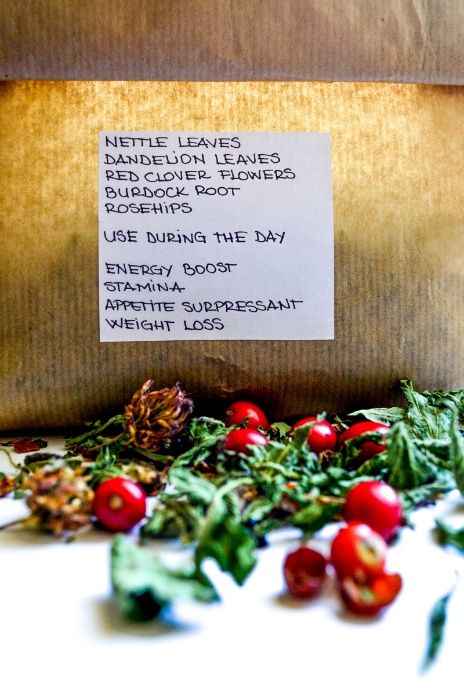 NETTLE LEAVES
DANDELION LEAVES
RED CLOVER FLOWERS
BURDOCK ROOT
ROSEHIPS
USE DURING THE DAY
ENERGY BOOST
STAMINA
APPETITE SURPRESSANT
WEIGHT LOSS